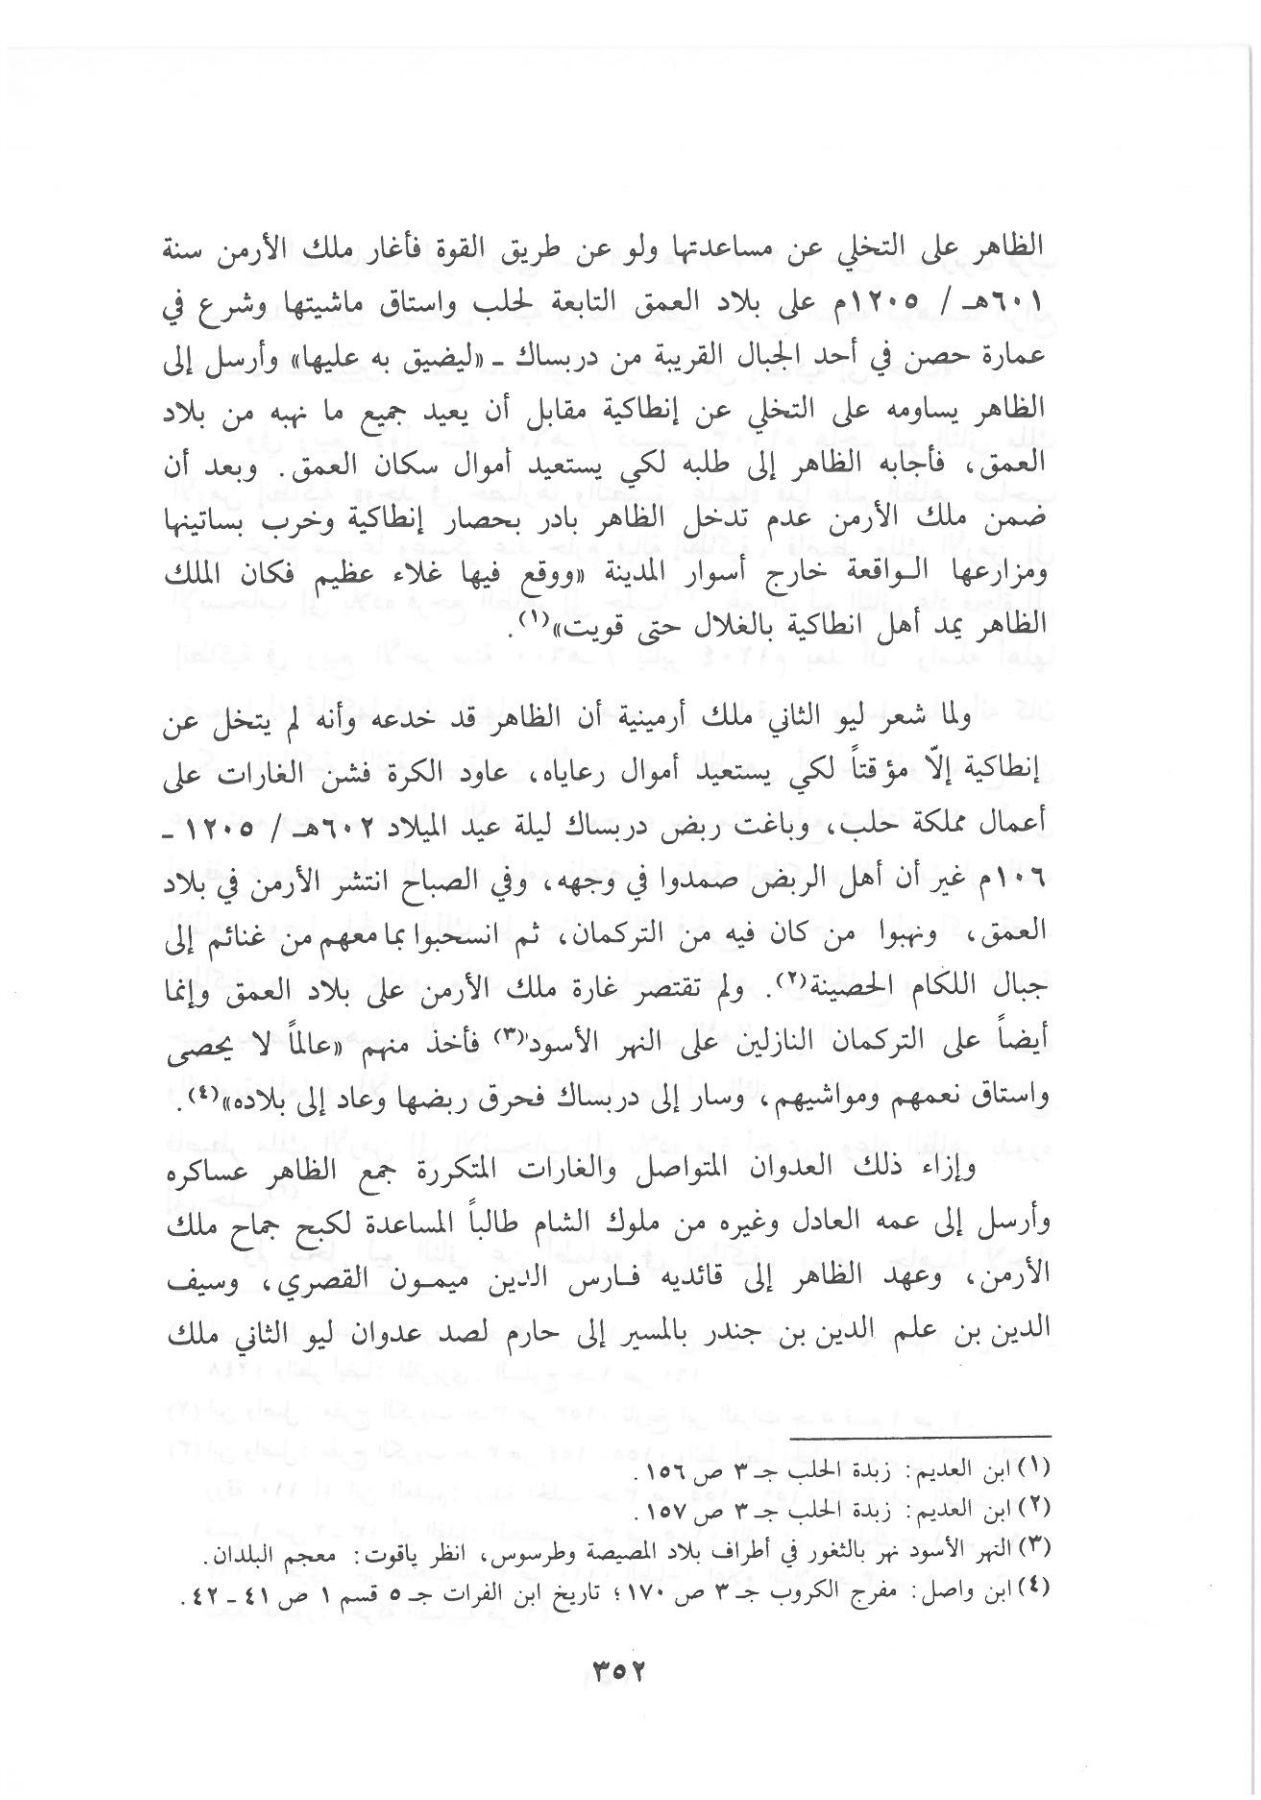 الظاهر على التخلي عن مساعدتها ولو عن طريق القوة فأغار ملك الأرمن سنة
٦٠١هـ / ١٢٠٥م على بلاد العمق التابعة لحلب واستاق ماشيتها وشرع في
عمارة حصن في أحد الجبال القريبة من دربساك ـ «ليضيق به عليها» وأرسل إلى
الظاهر يساومه على التخلي عن إنطاكية مقابل أن يعيد جميع ما نهبه من بلاد
العمق، فأجابه الظاهر إلى طلبه لكي يستعيد أموال سكان العمق. وبعد أن
ضمن ملك الأرمن عدم تدخل الظاهر بادر بحصار إنطاكية وخرب بساتينها
ومزارعها الواقعة خارج أسوار المدينة «ووقع فيها غلاء عظيم فكان الملك
الظاهر يمد أهل انطاكية بالغلال حتى قويت»(١).
ولما شعر ليو الثاني ملك أرمينية أن الظاهر قد خدعه وأنه لم يتخل عن
إنطاكية إلاّ مؤقتاً لكي يستعيد أموال رعاياه، عاود الكرة فشن الغارات على
أعمال مملكة حلب، وباغت ربض دربساك ليلة عيد الميلاد ٦٠٢هـ / ١٢٠٥ ـ
١٠٦م غير أن أهل الربض صمدوا في وجهه، وفي الصباح انتشر الأرمن في بلاد
العمق، ونهبوا من كان فيه من التركمان، ثم انسحبوا بما معهم من غنائم إلى
جبال اللكام الحصينة(٢). ولم تقتصر غارة ملك الأرمن على بلاد العمق وإنما
أيضاً على التركمان النازلين على النهر الأسود(٣) فأخذ منهم «عالماً لا يحصى
واستاق نعمهم ومواشيهم، وسار إلى دربساك فحرق ربضها وعاد إلى بلاده»(٤).
وإزاء ذلك العدوان المتواصل والغارات المتكررة جمع الظاهر عساكره
وأرسل إلى عمه العادل وغيره من ملوك الشام طالباً المساعدة لكبح جماح ملك
الأرمن، وعهد الظاهر إلى قائديه فارس الدين ميمون القصري، وسيف
الدين بن علم الدين بن جندر بالمسير إلى حارم لصد عدوان ليو الثاني ملك
(١) ابن العديم: زبدة الحلب جـ ٣ ص ١٥٦.
(٢) ابن العديم: زبدة الحلب جـ ٣ ص ١٥٧.
(٣) النهر الأسود نهر بالثغور في أطراف بلاد المصيصة وطرسوس، انظر ياقوت: معجم البلدان.
(٤) ابن واصل: مفرج الكروب جـ ٣ ص ١٧٠؛ تاريخ ابن الفرات جـ ٥ قسم ١ ص ٤١ ـ ٤٢.
٣٥٢